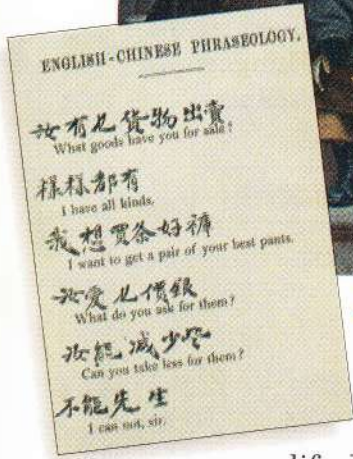 ENGLISH-CHINESE PHRASEOLOGY.
汝有乜貨物出賣
What goods have you for sale?
樣樣都有
I have all kinds.
我想買条好褲
I want to get a pair of your best pants.
汝愛乜價銀
What do you ask for them?
汝能减少些
Can you take less for them?
不能先生
I can not, sir.